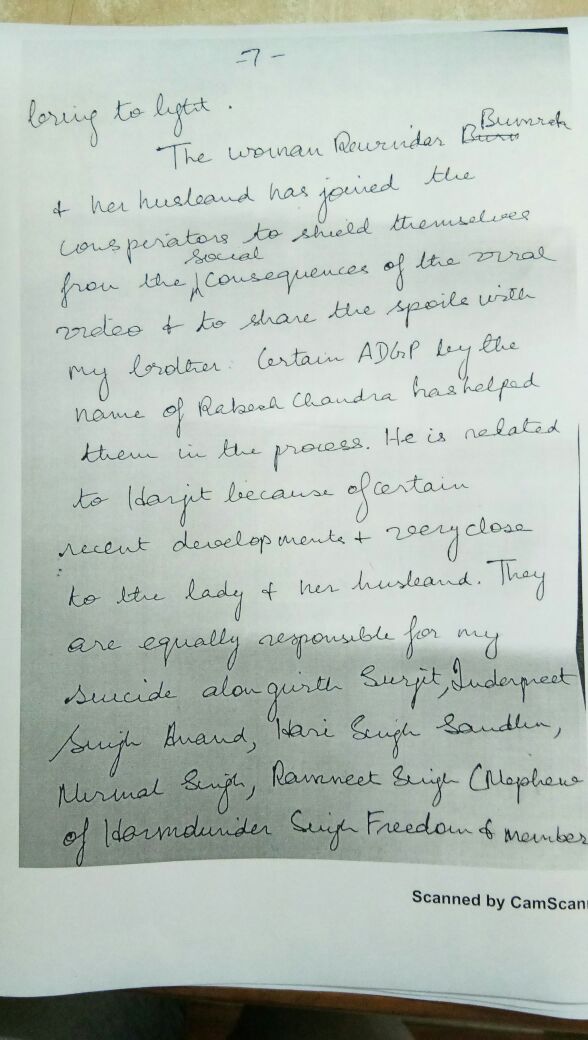 -7-
bring to light.
The woman Rewrinder Bumrah
& her husband has joined the
conspirators to shield themselves
from the social consequences of the viral
video & to share the spoils with
my brother. Certain ADGP by the
name of Rakesh Chandra has helped
them in the process. He is related
to Harjit because of certain
recent developments & very close
to the lady & her husband. They
are equally responsible for my
suicide alongwith Surjit, Inderpreet
Singh Anand, Hari Singh Sandhu,
Nirmal Singh, Ravneet Singh (Nephew
of Singh Freedom & member
Scanned by CamScan